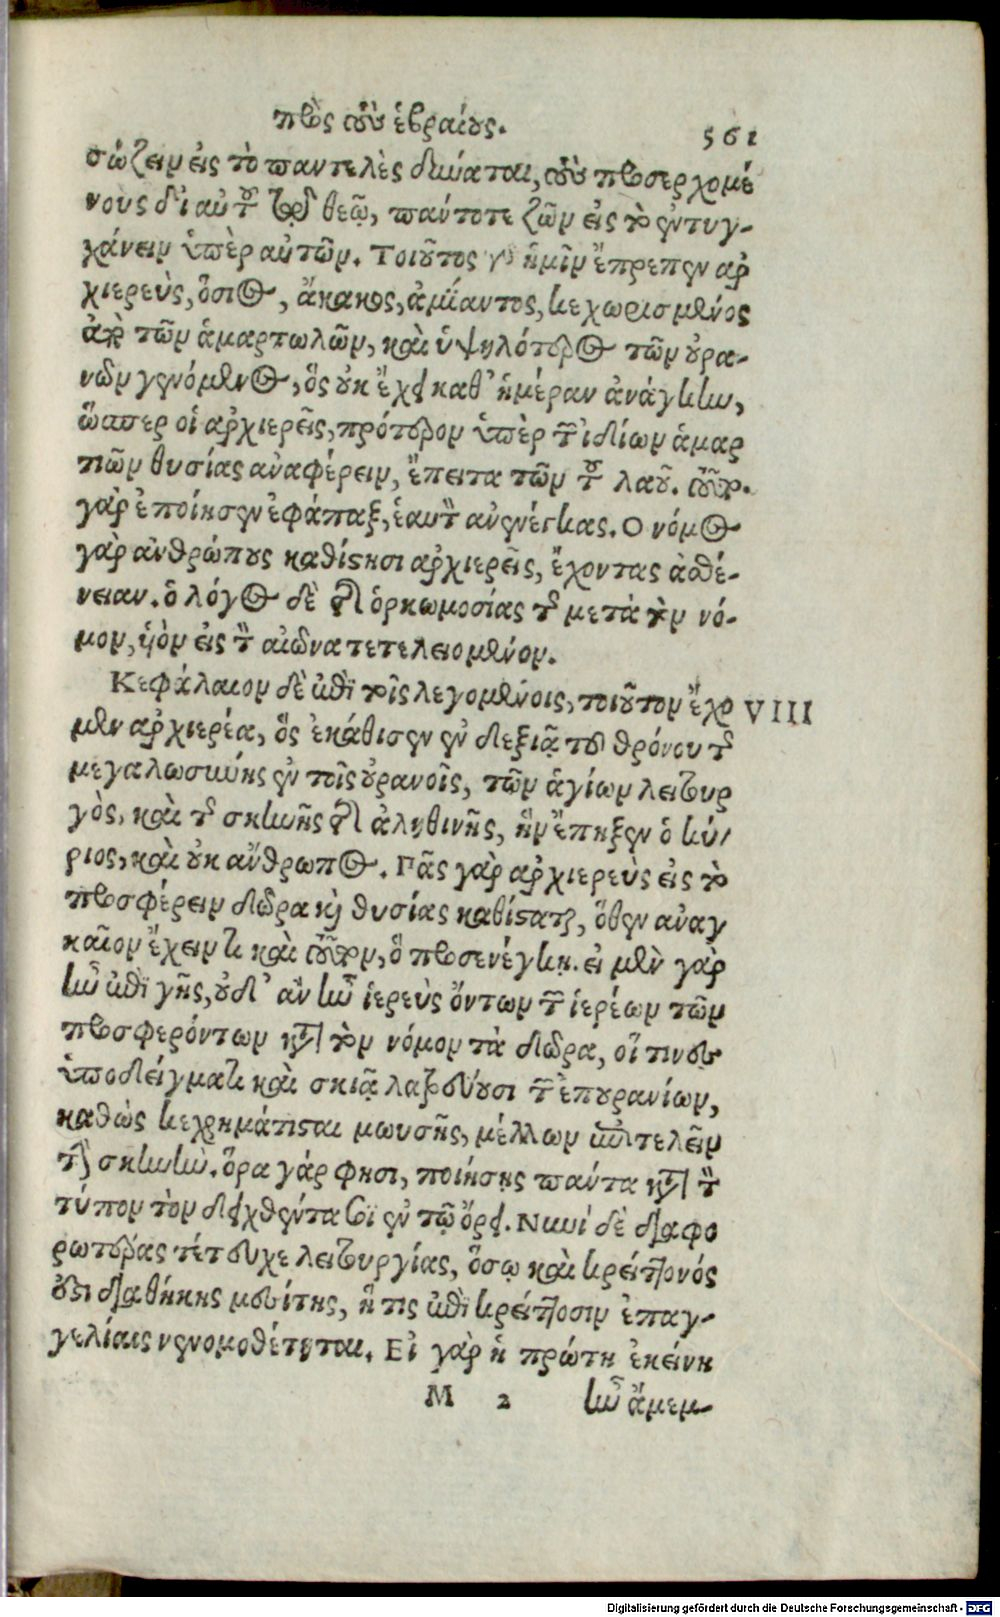 πρὸς τοὺς ἑβραίους. 561
σώζειν εἰς τὸ παντελὲς δύναται, τοὺς προσερχομέ
νους δι αὐτοῦ τῷ θεῷ, πάντοτε ζῶν εἰς τὸ ἐντυγ-
χάνειν ὑπὲρ αὐτῶν. Τοιοῦτος γὰρ ἡμῖν ἔπρεπεν αρ
χιερεὺς, ὅσιος, ἄκακος, ἀμίαντος, κεχωρισμένος
ἀπὸ τῶν ἁμαρτωλῶν, καὶ ὑψηλότερος τῶν οὐρα-
νῶν γενόμενος, ὃς οὐκ ἔχει καθ' ἡμέραν ἀνάγκην,
ὥσπερ οἱ αρχιερεῖς, πρότερον ὑπὲρ τῶν ἰδίων ἁμαρ
τιῶν θυσίας αναφέρειν, ἔπειτα τῶν τοῦ λαοῦ. τοῦτο.
γὰρ ἐποίησεν ἐφάπαξ, ἑαυτὸν ανενέγκας. Ο νόμος
γὰρ ανθρώπους καθίστησι αρχιερεῖς, ἔχοντας ἀσθέ-
νειαν. ὁ λόγος δὲ τῆς ὁρκωμοσίας τῆς μετὰ τὸν νό-
μον, υἱὸν εἰς τὸν αἰῶνα τετελειομένον.
Κεφάλαιον δὲ ἐπὶ τοῖς λεγομένοις, τοιοῦτον ἔχο VIII
μεν αρχιερέα, ὃς ἐκάθισεν ἐν δεξιᾷ τοῦ θρόνου τῆς
μεγαλωσύνης ἐν τοῖς οὐρανοῖς, τῶν ἁγίων λειτουρ
γὸς, καὶ τῆς σκηνῆς τῆς ἀληθινῆς, ἣν ἔπηξεν ὁ κύ-
ριος, καὶ οὐκ ανθρωπος. Πᾶς γὰρ αρχιερεὺς εἰς τὸ
προσφέρειν δῶρα καὶ θυσίας καθίσταται, ὅθεν αναγ
καῖον ἔχειν τι καὶ τοῦτον, ὃ προσενέγκῃ. εἰ μὲν γὰρ
ἦν ἐπὶ γῆς, οὐδ' αν ἦν ἱερεὺς ὄντων τῶν ἱερέων τῶν
προσφερόντων κατὰ τὸν νόμον τὰ δῶρα, οἵ τινες
ὑποδείγματι καὶ σκιᾷ λατρεύουσι τῶν ἐπουρανίων,
καθὼς κεχρημάτισται μωυσῆς, μέλλων ἐπιτελεῖν
τὴν σκηνὴν. ὅρα γάρ φησι, ποιήσῃς πάντα κατὰ τὸν
τύπον τὸν δειχθέντα σοὶ ἐν τῷ ὄρει. Νυνὶ δὲ διαφο
ρωτέρας τέτευχε λειτουργίας, ὅσῳ καὶ κρείττονός
ἐστι διαθήκης μεσίτης, ἥ τις ἐπὶ κρείττοσιν ἐπαγ-
γελίαις νενομοθέτηται. Εἰ γὰρ ἡ πρώτη ἐκείνη
M 2 ἦν ἄμεμ-
Digitalisierung gefördert durch die Deutsche Forschungsgemeinschaft - DFG